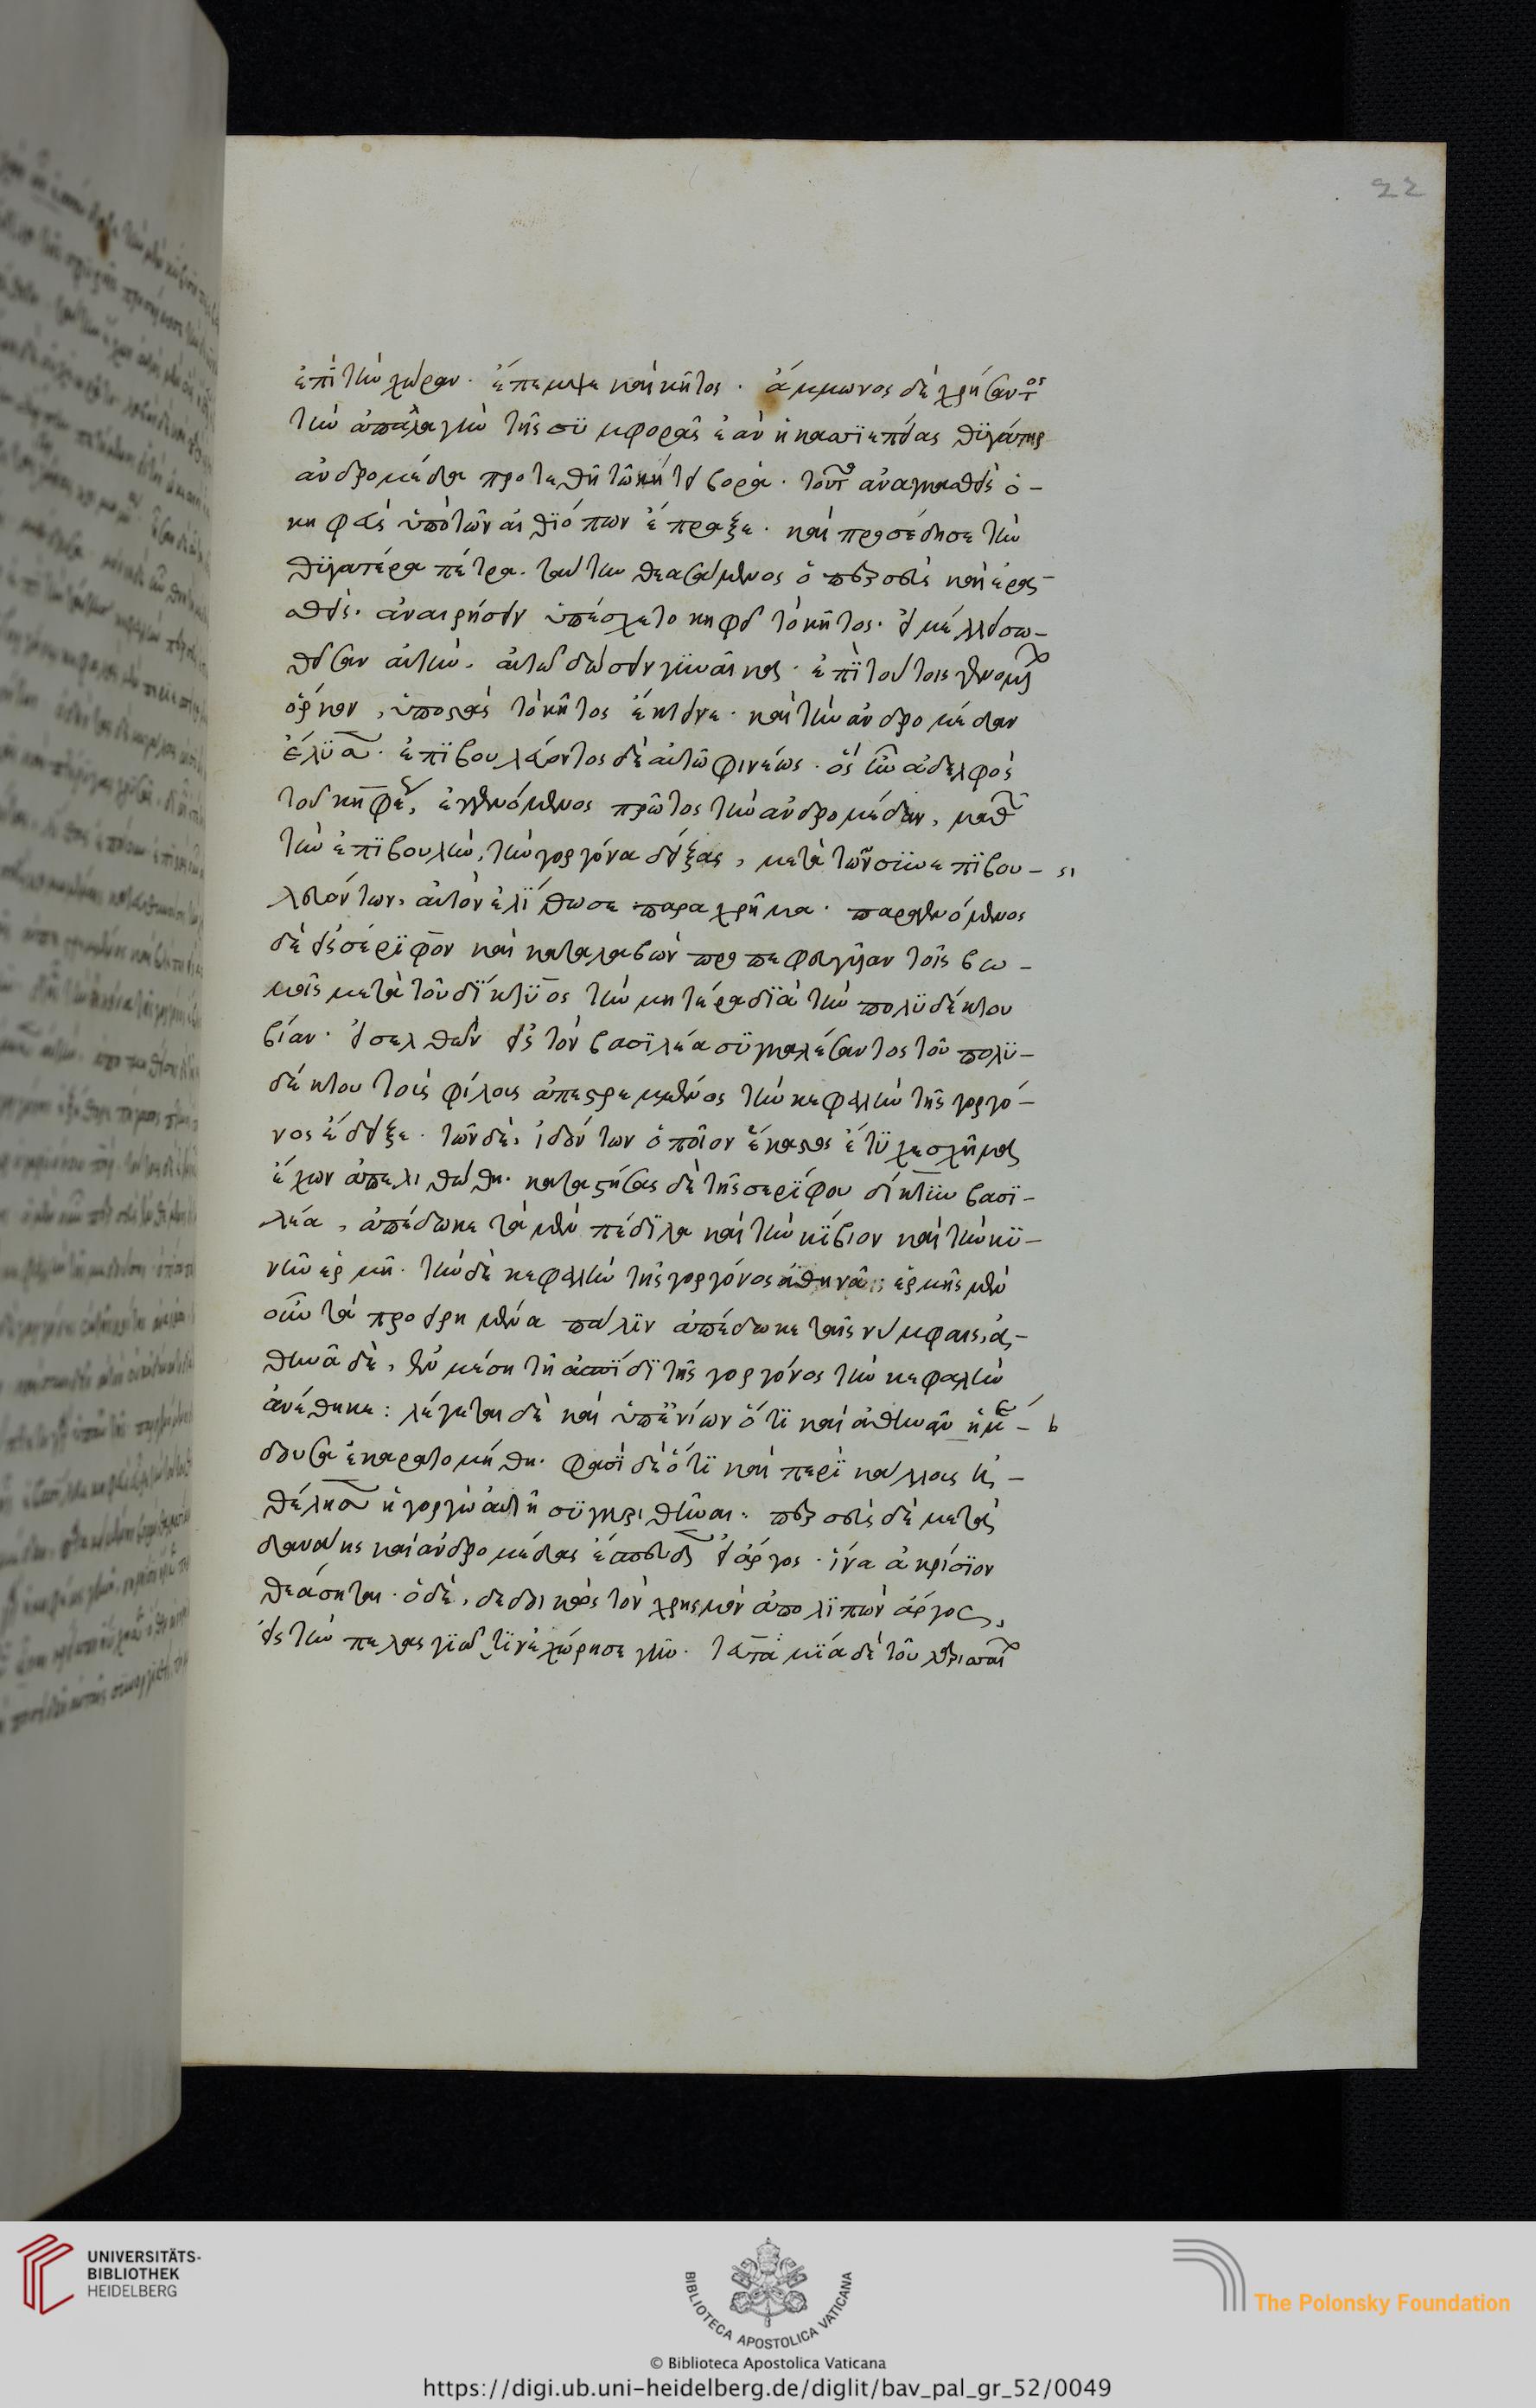 22
ἐπὶ τὴν χώραν. ἔπεμψε καὶ κῆτος. ἄμμωνος δὲ χρήσαντος
τὴν ἀπαλαγὴν τῆς συμφορᾶς ἐὰν ἡ κασιεπείας θυγάτηρ
ἀνδρομέδα προτεθῆ τῶ κήτει βορά. τοῦτο ἀναγκασθεὶς ὁ
κηφεὺς ὑπὸ τῶν αἰθιόπων ἔπραξε. καὶ προσέδησε τὴν
θυγατέρα πέτρα. ταύτην θεασάμενος ὁ περσεὺς καὶ ἐρασ-
θεὶς. ἀναιρήσειν ὑπέσχετο κηφεῖ τὸ κῆτος. εἰ μέλλει σω-
θεῖσαν αὐτὴν. αὐτῶ δώσειν γυναῖκα. ἐπὶ τούτοις γενομένων
ὅρκων, ὑποστὰς τὸ κῆτος ἔκτεινε. καὶ τὴν ἀνδρομέδαν
ἔλυσεν. ἐπιβουλεύοντος δὲ αὐτῶ φινέως. ὃς ἦν ἀδελφὸς
τοῦ κηφέως, ἐγγενόμενος πρῶτος τὴν ἀνδρομέδαν, μαθὼν
τὴν ἐπιβουλὴν, τὴν γοργόνα δείξας, μετὰ τῶν συνεπιβου-
λευόντων, αὐτὸν ἐλίθωσε παραχρῆμα. παραγενόμενος
δὲ εἰς σέριφον καὶ καταλαβὼν προπεφευγυῖαν τοῖς βω-
μοῖς μετὰ τοῦ δίκτυος τὴν μητέρα διὰ τὴν πολυδέκτου
βίαν. εἰσελθὼν εἰς τὸν βασιλέα συγκαλέσαντος τοῦ πολυ-
δέκτου τοὺς φίλους ἀπεστρεμμένος τὴν κεφαλὴν τῆς γοργό-
νος ἔδειξε. τῶν δὲ, ἰδόντων ὁποῖον ἕκαστος ἔτυχε σχῆμα
ἔχων ἀπελιθώθη. καταστήσας δὲ τῆς σερίφου δίκτυν βασι-
λέα, ἀπέδωκε τὰ μὲν πέδιλα καὶ τὴν κίβισιν καὶ τὴν κυ-
νῆν ἑρμῆ. τὴν δὲ κεφαλὴν τῆς γοργόνος ἀθηνᾶ: ἑρμῆς μὲν
οὖν τὰ προειρημένα πάλιν ἀπέδωκε ταῖς νύμφαις, ἀ-
θηνᾶ δὲ, ἐν μέση τῆ ἀσπίδι τῆς γοργόνος τὴν κεφαλὴν
ἀνέθηκε: λέγεται δὲ καὶ ὑπ' ἐνίων ὅτι καὶ ἀθηνᾶν ἡ μέ-
δουσα ἐκαρατομήθη. φασὶ δὲ ὅτι καὶ περὶ κάλλους ἠ-
θέλησεν ἡ γοργὼ αὐτῆ συγκριθῆναι. περσεὺς δὲ μετὰ
δανάης καὶ ἀνδρομέδας ἔσπευδεν εἰς ἄργος. ἵνα ἀκρίσιον
θεάσηται. ὁ δὲ, δεδοικὼς τὸν χρησμὸν ἀπολιπὼν ἄργος,
εἰς τὴν πελασγιῶτιν ἐχώρησε γῆν.
UNIVERSITÄTS-
BIBLIOTHEK
HEIDELBERG
BIBLIOTECA APOSTOLICA VATICANA
© Biblioteca Apostolica Vaticana
The Polonsky Foundation
https://digi.ub.uni-heidelberg.de/diglit/bav_pal_gr_52/0049